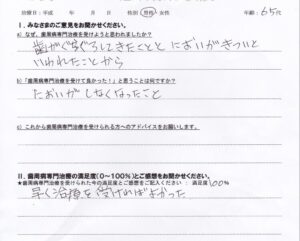 治療日：平成　年　月　日　性別 男性・女性　年齢：65代
Ⅰ．みなさまのご意見をお聞かせください。
a) なぜ、歯周病専門治療を受けようと思われましたか？
歯がぐらぐらしてきたことと においがきついと
いわれたことから
b)「歯周病専門治療を受けて良かった！」と思うことは何ですか？
においが しなくなったこと
c) これから歯周病専門治療を受けられる方へのアドバイスをお願いします。
Ⅱ．歯周病専門治療の満足度（0～100%）とご感想をお聞かせください。
★歯周病専門治療を受けられた今の満足度とご感想をご記入ください：満足度100%
早く治療を受ければよかった